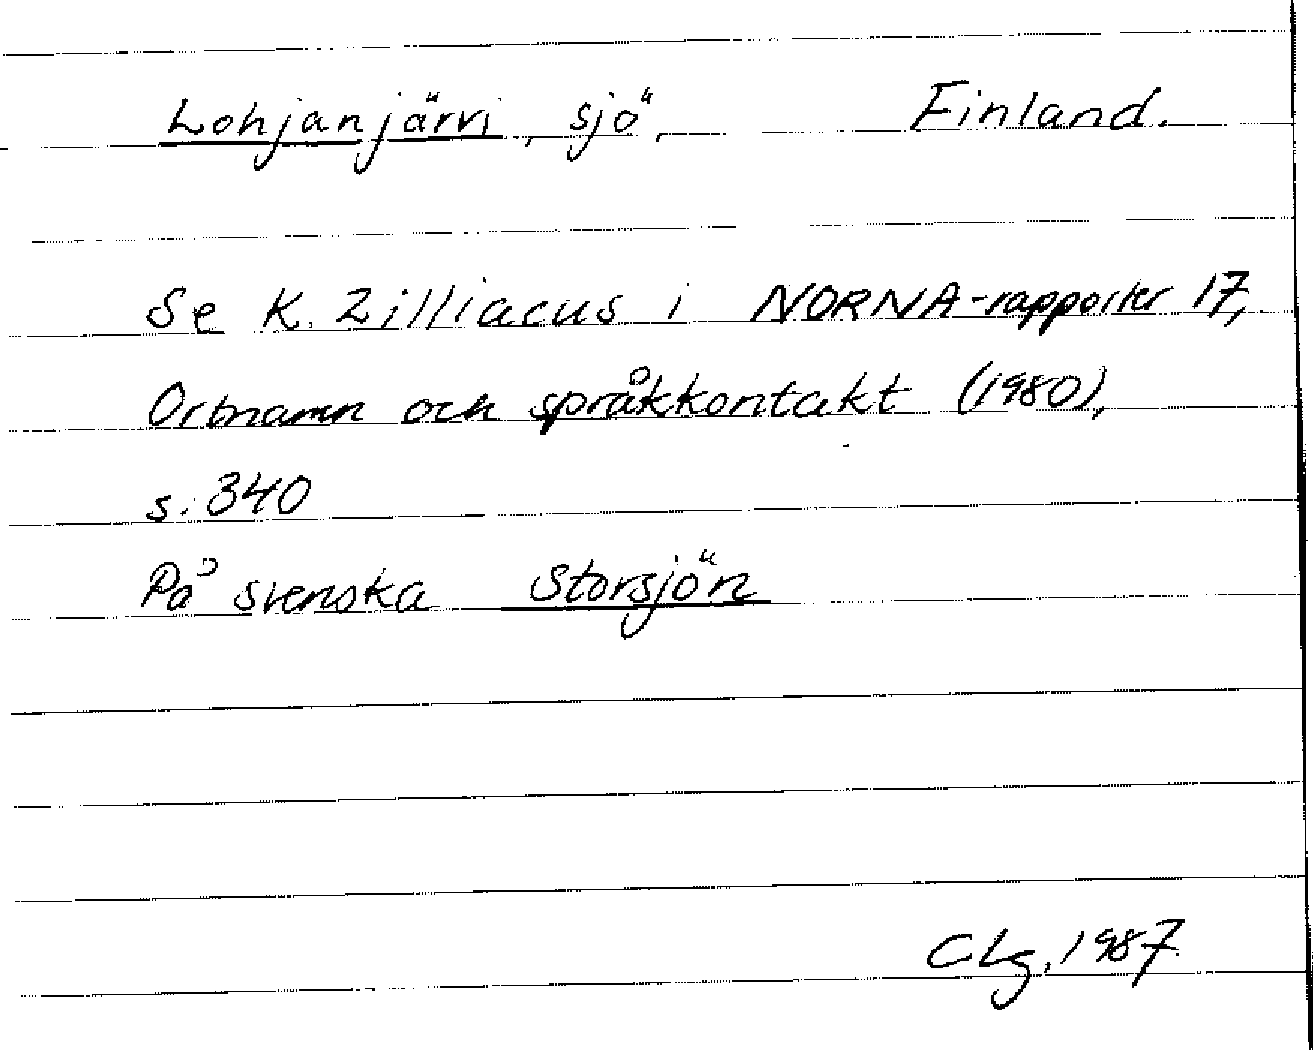 Lohjanjärvi, sjö, Finland.
Se K. Zilliacus i NORNA-rapporter 17,
Ortnamn och språkkontakt (1980),
s. 340
På svenska Storsjön
CLg, 1987.